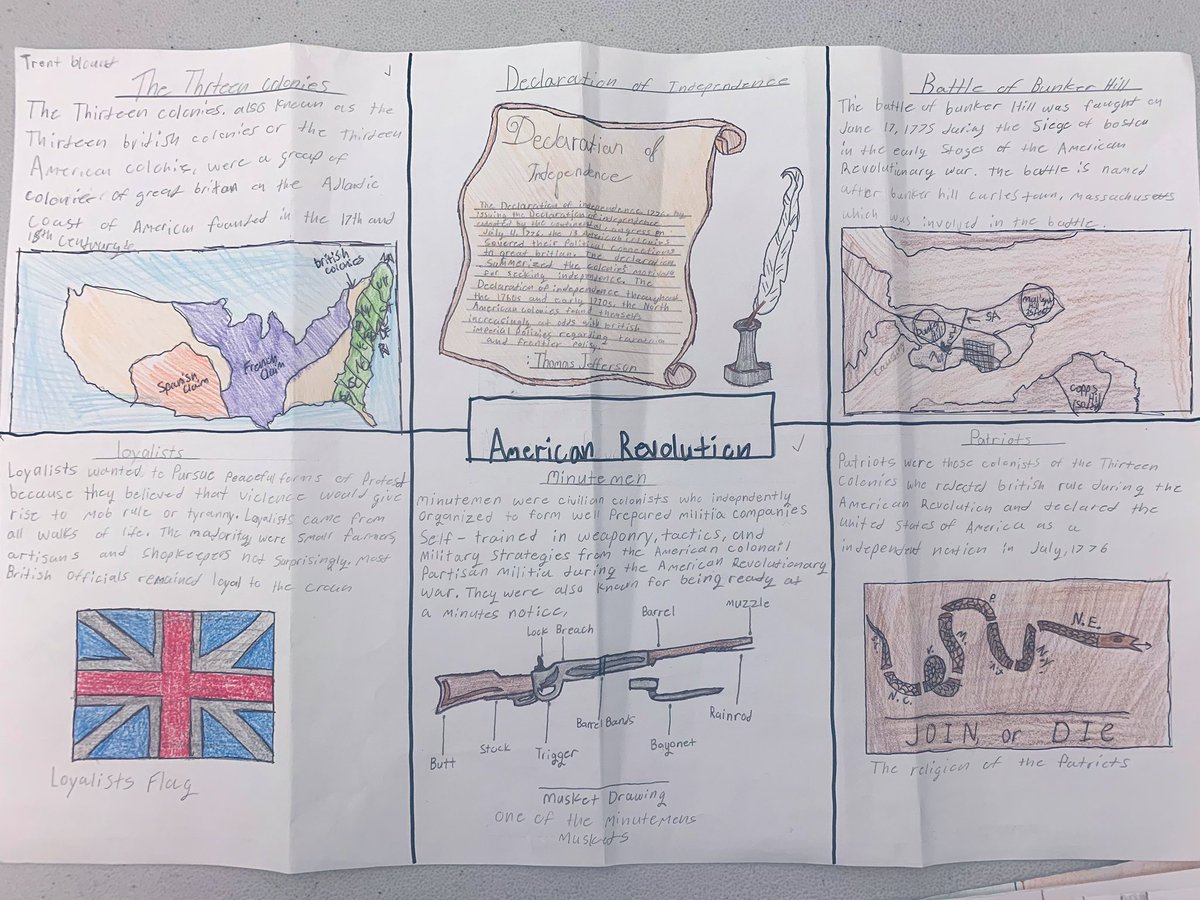 Trent blount
The Thrteen colonies
The Thirteen colonies, also known as the
Thirteen british colonies or the Thirteen
American colonis, were a group of
colonies of great britan on the Adlantic
coast of American founded in the 17th and
18th
british colonies
Spanish Claim
French Claim
Declaration of Independence
Declaration of
Independence
The Declaration of independence, 1776. By
issuing the Declaration of independence
adopted by the continental congress on
July 4, 1776, the 13 American colonies
Severed their Political connections
to great britian. The declaration
Summerized the colonies motivate
for seeking independence. The
Declaration of independence throughout
the 1760s and early 1770s, the North
American colonies found themselfs
increasingly at odds with british
imperial Policies regarding taxation
and frontier Policy.
: Thomas Jefferson
Battle of Bunker Hill
The battle of bunker Hill was faught on
June 17, 1775 during the Siege of boston
in the early stages of the American
Revolutionary war. the battle is named
after bunker hill Carles town, Massachusets
which was involved in the battle.
SA
copps
American Revolution
loyalists
Loyalists wanted to Pursue Peaceful forms of Protest
because they believed that violence would give
rise to mob rule or tyranny. Loyalists came from
all walks of life. The majority were small farmers,
artisans and shopkeepers not surprisingly, most
British officials remained loyal to the crown
Loyalists Flag
Minutemen
minutemen were civilian colonists who indepndently
Organized to form well Prepared militia companies
Self-trained in weaponry, tactics, and
Military strategies from the American colonail
Partisan Militia during the American Revolutionary
war. They were also known for being ready at
a minutes notice,
Lock Breach
Barrel
muzzle
Butt
Stock
Trigger
Barrel Bands
Bayonet
Rainrod
Musket Drawing
one of the minutemens
Muskets
Patriots
Patriots were those colonists of the Thirteen
Colonies who rejected british rule during the
American Revolution and declared the
united States of America as a
independent nation in July, 1776
N.E.
N.Y.
N.J
P.
M.
V.
N.C.
JOIN, or DIE
The religion of the Patriots